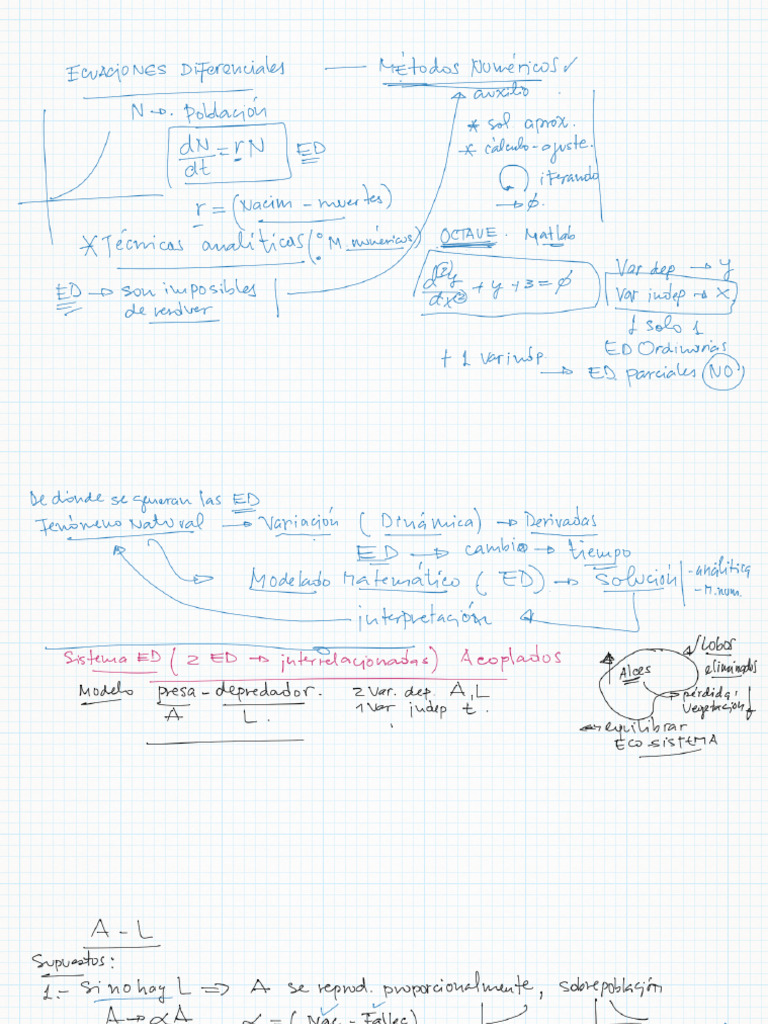 ECUACIONES DIFERENCIALES — MÉTODOS NUMÉRICOS ✓
auxilio
N → Población
* sol aprox.
dN/dt = rN ED
* cálculo - ajuste.
iterando
→ ∅.
r = (Nacim - muertes)
* Técnicas analíticas (° M. numéricos)
OCTAVE. Matlab
d²y/dx² + y + 3 = ∅
Var dep → y
Var indep → x
ED → son imposibles
de resolver
1 solo 1
ED Ordinarias
+ 1 var indp.
→ ED parciales NO
De dónde se generan las ED
Fenómeno Natural → Variación (Dinámica) → Derivadas
ED → cambio → tiempo
Modelado Matemático (ED) → Solución
- analítica
- M. num.
interpretación
Sistema ED (2 ED → interrelacionadas) Acoplados
Modelo presa - depredador. 2 Var. dep. A, L
A L. 1 Var indep t.
Lobos
Alces eliminados
pérdida
vegetación
equilibrar
ECOSISTEMA
A - L
Supuestos:
1.- Si no hay L ⇒ A se reprod. proporcionalmente, sobrepoblación
A → αA α = (Nac. - Fallec)